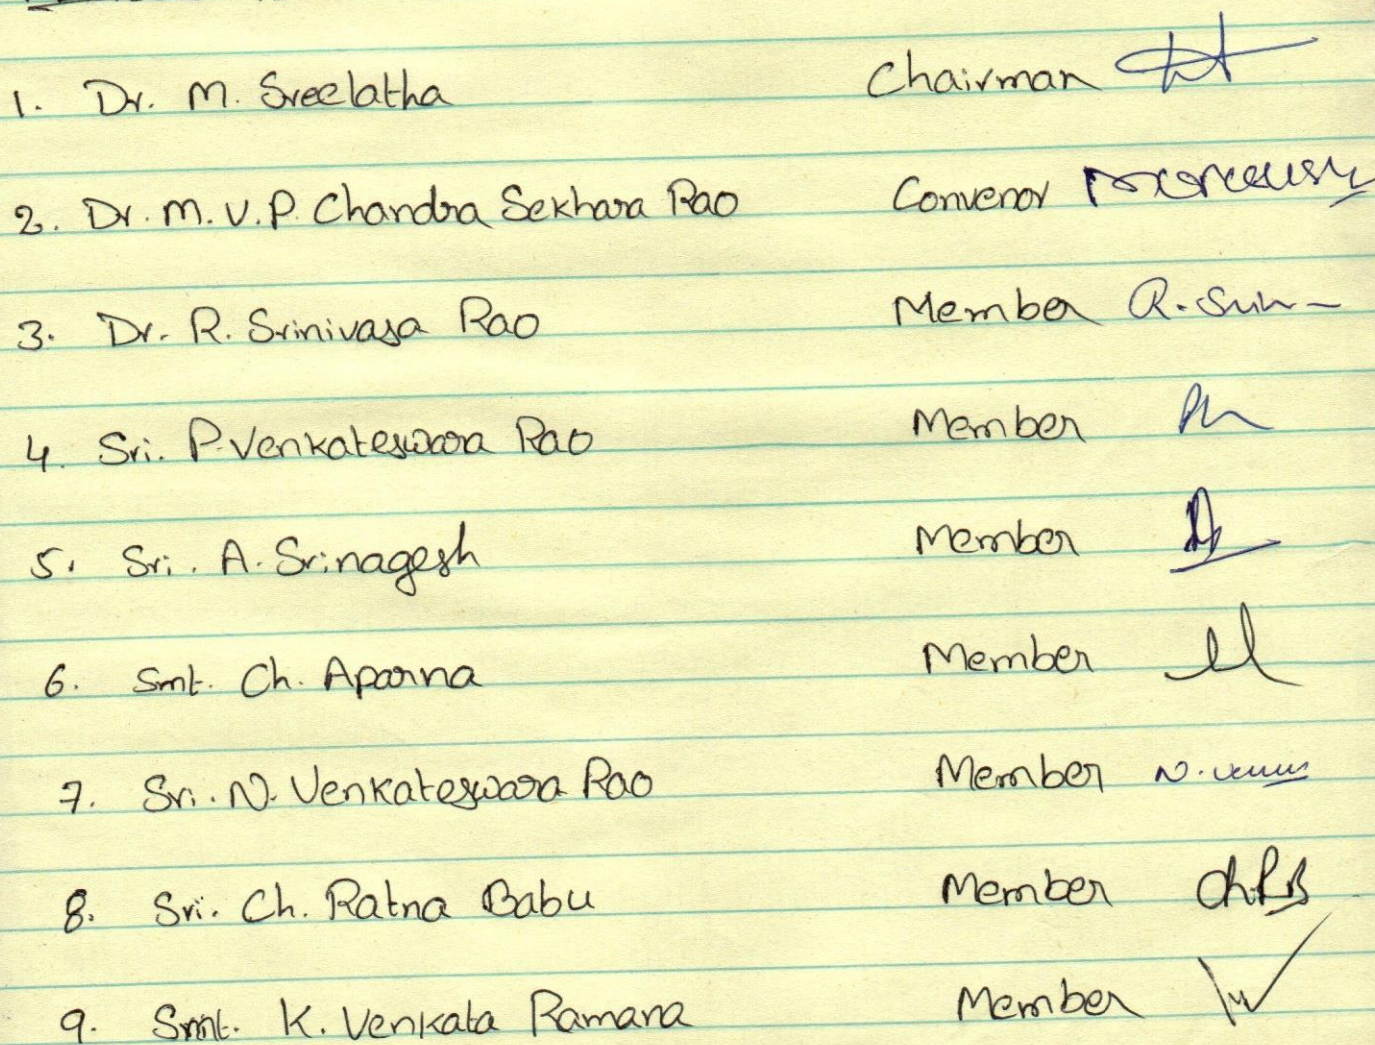 1. Dr. M. Sreelatha Chairman
2. Dr. M.V.P. Chandra Sekhara Rao Convenor
3. Dr. R. Srinivasa Rao Member R. Srin
4. Sri. P. Venkateswara Rao Member
5. Sri. A. Srinagesh Member
6. Smt. Ch. Aparna Member
7. Sri. N. Venkateswara Rao Member
8. Sri. Ch. Ratna Babu Member Ch.R.B
9. Smt. K. Venkata Ramana Member